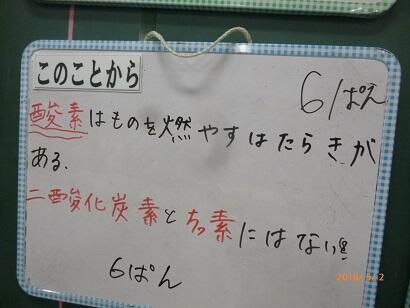 このことから
6ぱん
酸素はものを燃やすはたらきが
ある.
二酸化炭素とちっ素にはない
6ぱん